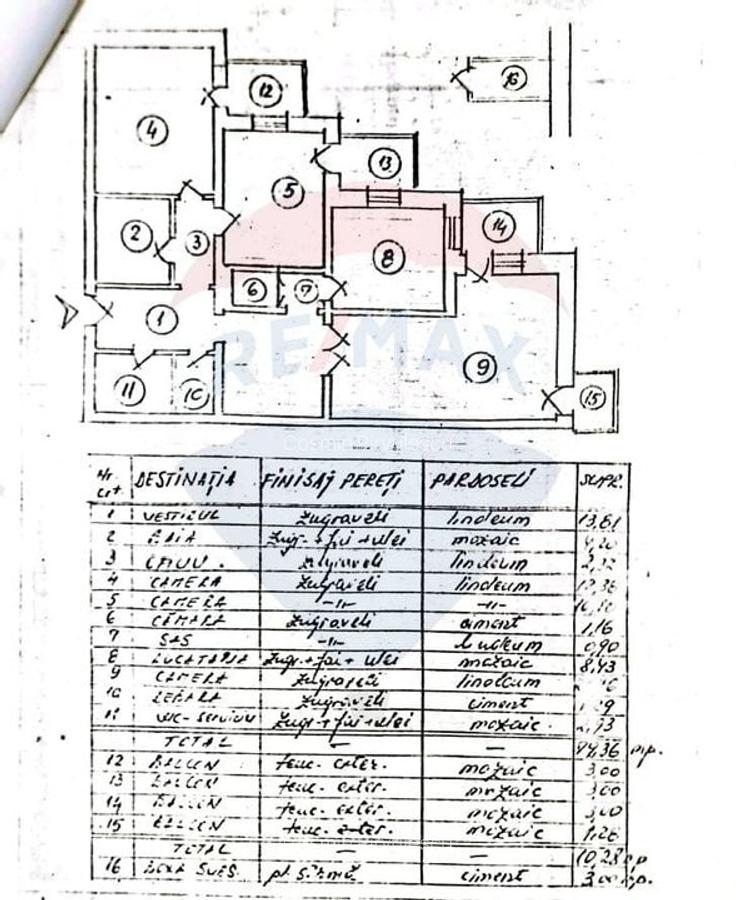 12
16
4
13
5
2
14
3
8
6
7
1
9
11
10
15
RE/MAX
Nr. crt DESTINAȚIA FINISAJ PEREȚI PARDOSELI SUPR.
1 VESTIBUL Zugraveli linoleum 13,61
2 BAIA Zugr. + fai + ulei mozaic
3 Zugraveli linoleum
4 CAMERA Zugraveli linoleum
5 CAMERA -"- -"-
6 CĂMARA Zugraveli ciment 1,16
7 SAS -"- linoleum 0,90
8 BUCATARIA Zugr. + fai + ulei mozaic 8,43
9 CAMERA Zugraveli linoleum
10 DEBARA Zugraveli ciment
11 WC-serviciu Zugr + fai + ulei mozaic
TOTAL — — m.p.
12 BALCON tenc. exter. mozaic 3,00
13 BALCON tenc. exter. mozaic 3,00
14 BALCON tenc. exter. mozaic 3,00
15 BALCON tenc. exter. mozaic 1,28
TOTAL — — 10,28 mp
16 BOXA SUBS. ciment 3,00 m.p.